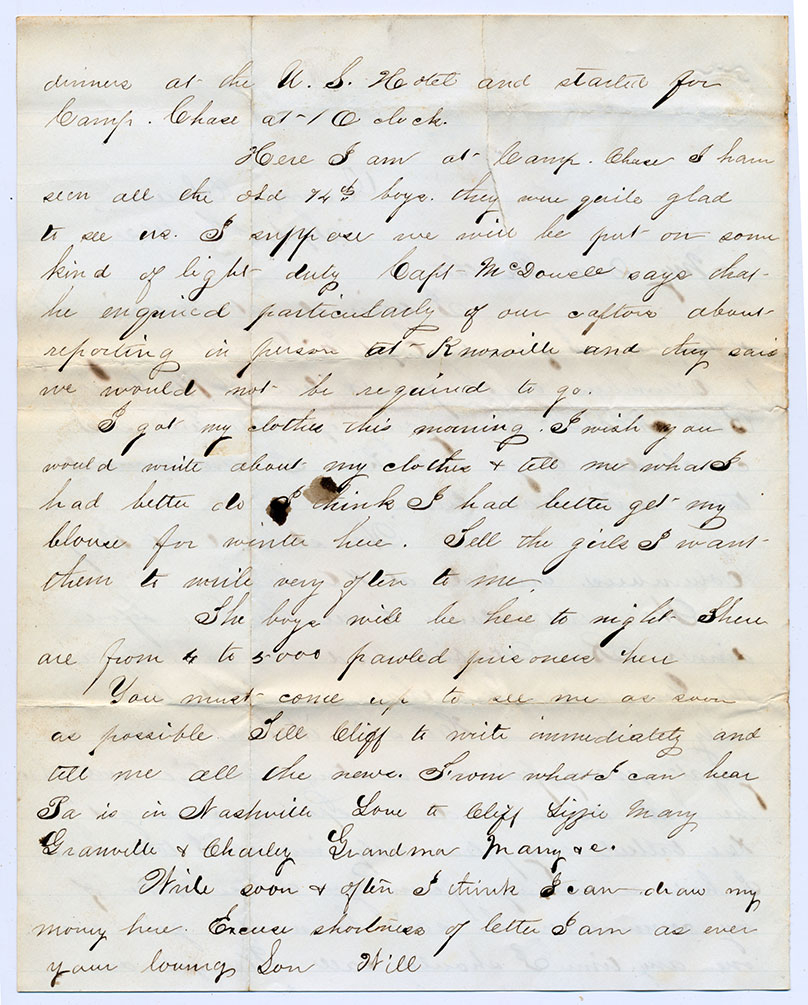 dinners at the U. S. Hotel and started for
Camp. Chase at 1 O clock.
Here I am at Camp. Chase I have
seen all the old 74th boys. they were quite glad
to see us. I suppose we will be put on some
kind of light duty Capt McDowell says that
he enquired particularly of our captors about
reporting in person at Knoxville and they said
we would not be required to go.
I got my clothes this morning. I wish you
would write about my clothes & tell me what I
had better do I think I had better get my
blouse for winter here. Tell the girls I want
them to write very often to me.
The boys will be here to night There
are from 4 to 5000 parolled prisoners here
You must come up to see me as soon
as possible. Tell Cliff to write immediately and
tell me all the news. From what I can hear
Pa is in Nashville Love to Cliff Lizzie Mary
Granville & Charley Grandma Marry & c.
Write soon & often I think I can draw my
money here. Excuse shortness of letter I am as ever
your loving Son Will